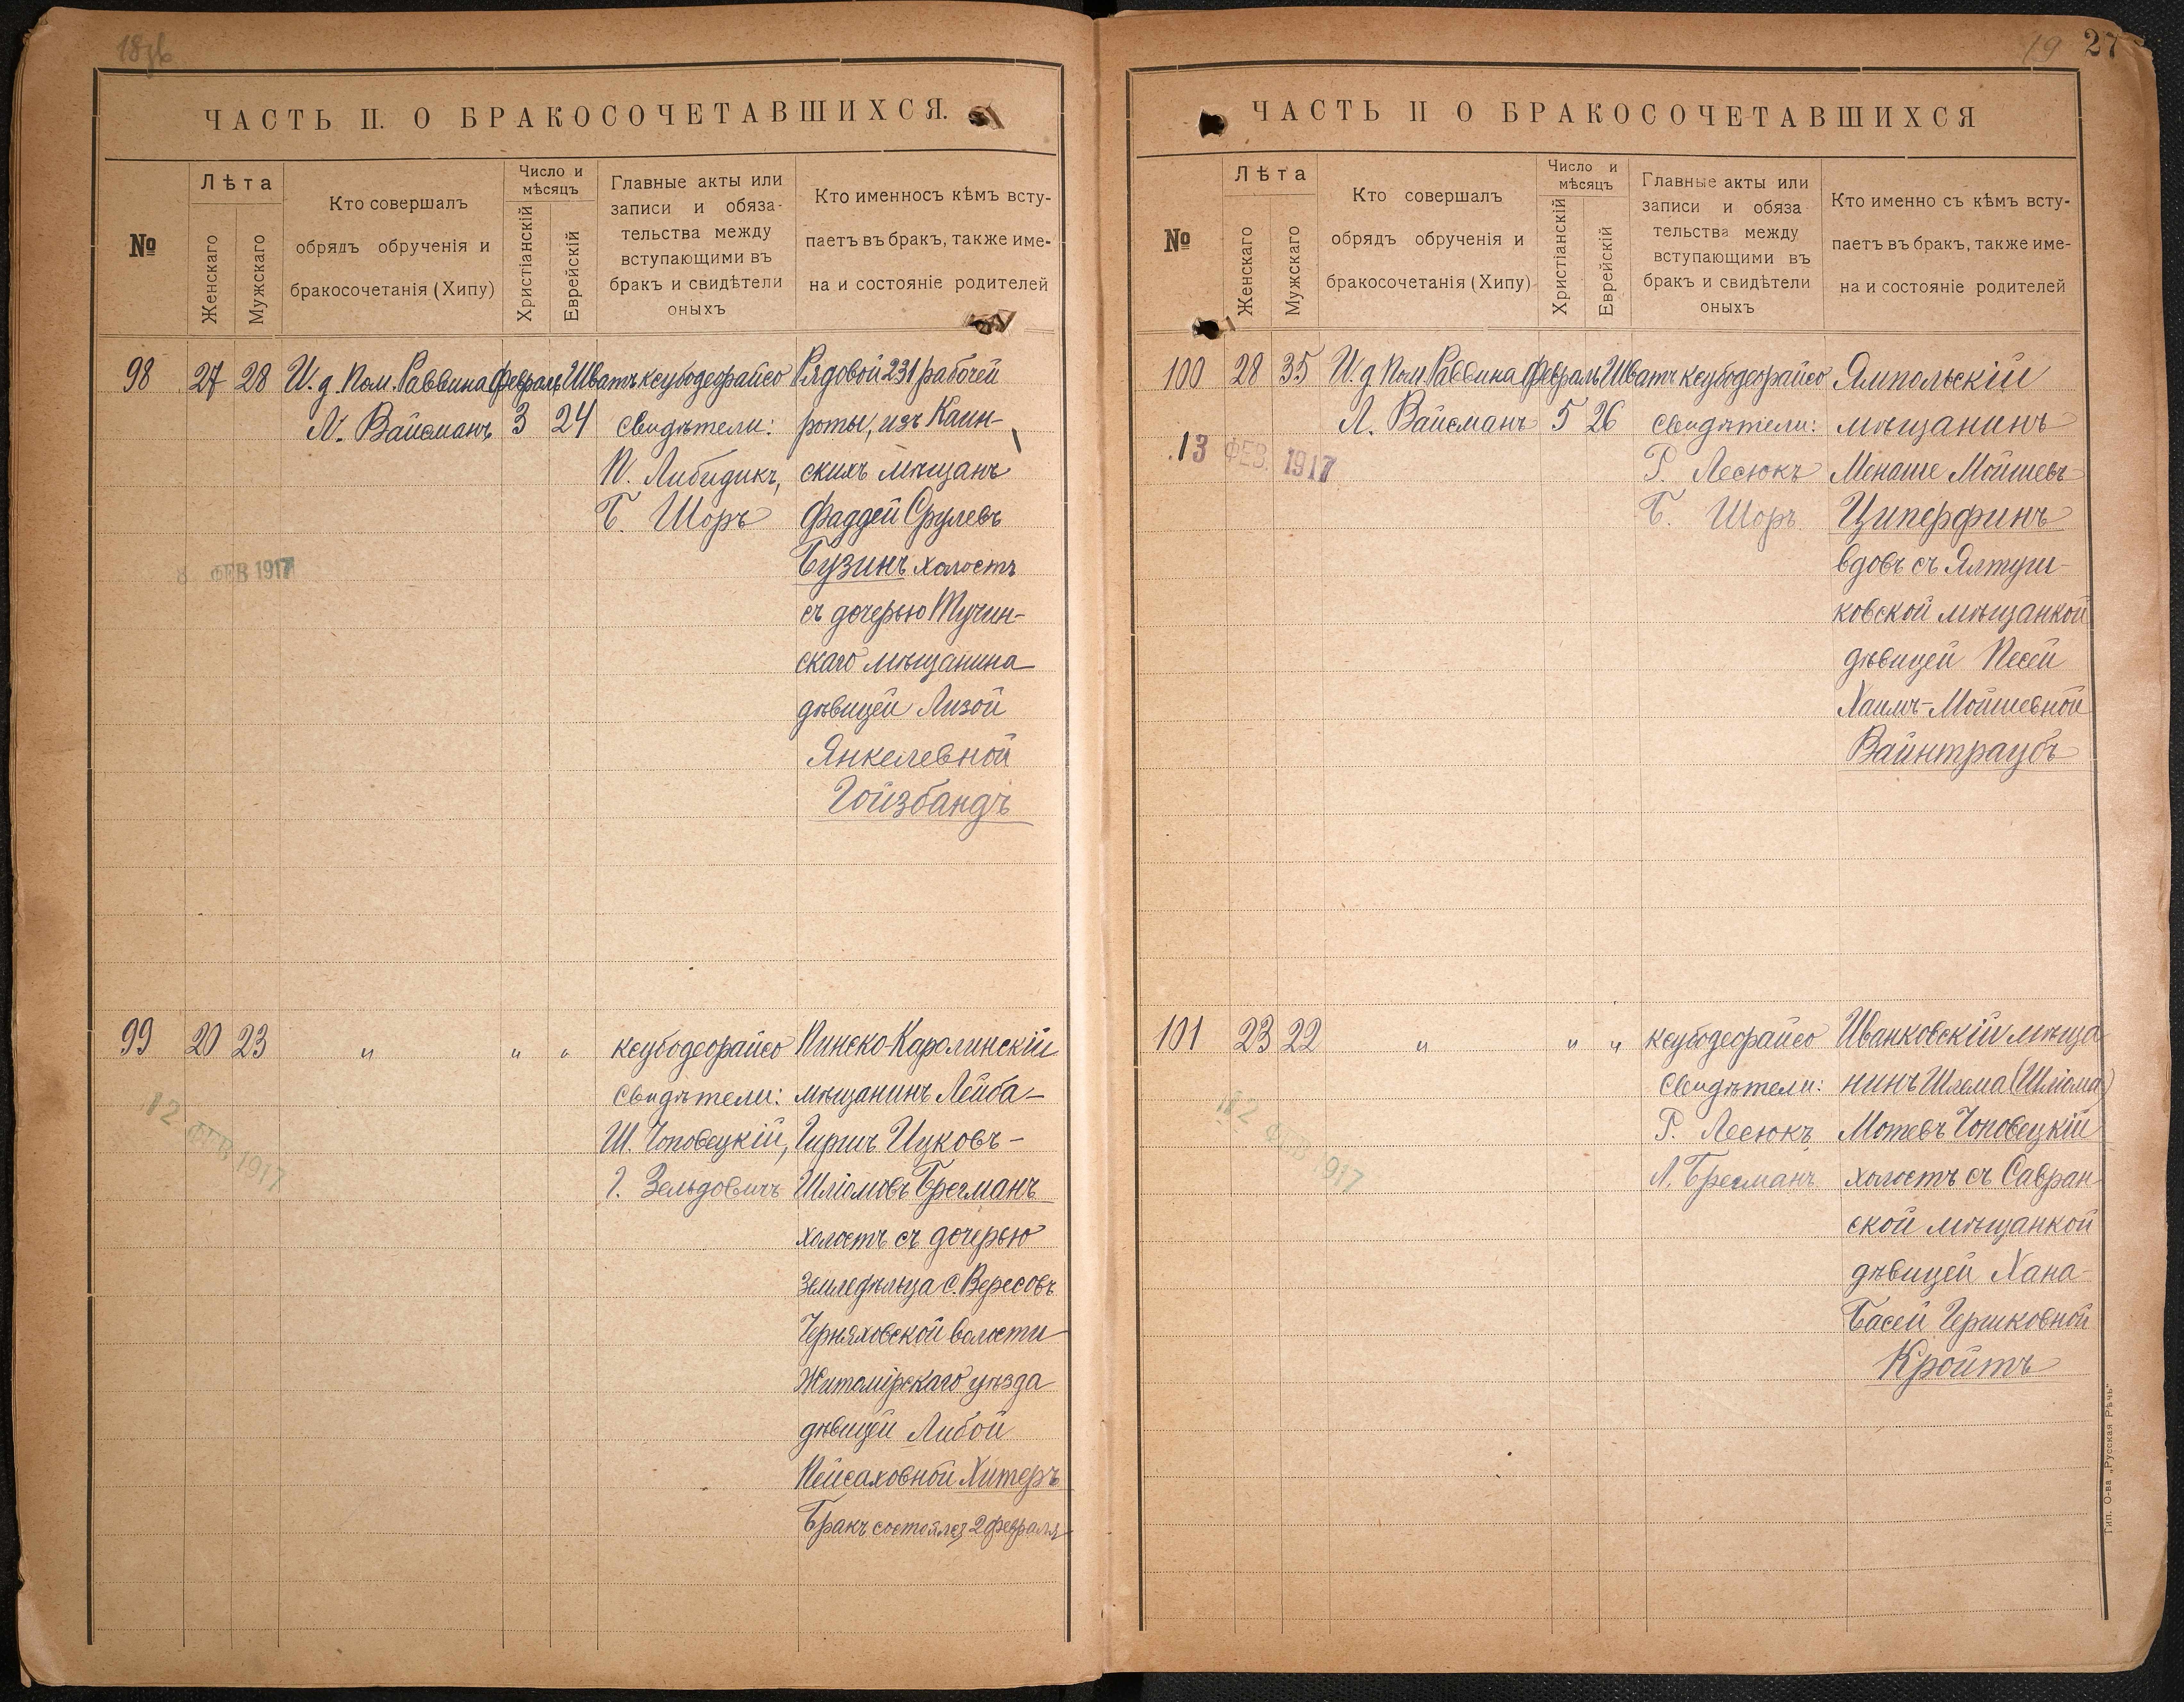 18зб
ЧАСТЬ II. О БРАКОСОЧЕТАВШИХСЯ.
№
Лѣта
Женскаго
Мужскаго
Кто совершалъ
обрядъ обрученія и
бракосочетанія (Хипу)
Число и
мѣсяцъ
Христіанскій
Еврейскій
Главные акты или
записи и обяза-
тельства между
вступающими въ
бракъ и свидѣтели
оныхъ
Кто именносъ кѣмъ всту-
паетъ въ бракъ, также име-
на и состояніе родителей
98 27 28 И. д. Пом. Раввина Февраль Шватъ ксубодеорайсо Рядовой 231 рабочей
Л. Вайсманъ 3 24 свидѣтели: роты, изъ Каин-
П. Либидикъ, скихъ мѣщанъ
Б. Шоръ Фаддей Срулевъ
8 ФЕВ 1917
Бузинъ холостъ
съ дочерью Тучин-
скаго мѣщанина
дѣвицей Лизой
Янкелевной
Гойзбандъ
99 20 23 " " " ксубодеорайсо Пинско-Каролинскій
свидѣтели: мѣщанинъ Лейба-
12 ФЕВ 1917
Ш. Чоповецкій, Гиршъ Ицковъ-
Г. Зельдовичъ Шліомовъ Брегманъ
холостъ съ дочерью
земледѣльца с. Вересовъ
Черняховской волости
Житомірскаго уѣзда
дѣвицей Либой
Пейсаховной Хитеръ
Бракъ состоялся 2 февраля
19 27
ЧАСТЬ II О БРАКОСОЧЕТАВШИХСЯ
№
Лѣта
Женскаго
Мужскаго
Кто совершалъ
обрядъ обрученія и
бракосочетанія (Хипу)
Число и
мѣсяцъ
Христіанскій
Еврейскій
Главные акты или
записи и обяза
тельства между
вступающими въ
бракъ и свидѣтели
оныхъ
Кто именно съ кѣмъ всту-
паетъ въ бракъ, также име-
на и состояніе родителей
100 28 35 И. д Пом. Раввина Февраль Шватъ ксубодеорайсо Ямпольскій
Л. Вайсманъ 5 26 свидѣтели: мѣщанинъ
13 ФЕВ. 1917
Г. Лесюкъ Менаше Мойшевъ
Б. Шоръ Циперфинъ
вдовъ съ Ялтуш-
ковской мѣщанкой
дѣвицей Песей
Хаимъ-Мойшевной
Вайнтраубъ
101 23 22 " " " ксубодеорайсо Иванковскій мѣща
свидѣтели: нинъ Шлема (Шліома)
12 ФЕВ 1917
Г. Лесюкъ Мотевъ Чоповецкій
Л. Брегманъ холостъ съ Савран
ской мѣщанкой
дѣвицей Хана-
Басей Гершковной
Кройтъ
Тип. О-ва „Русская Рѣчь"